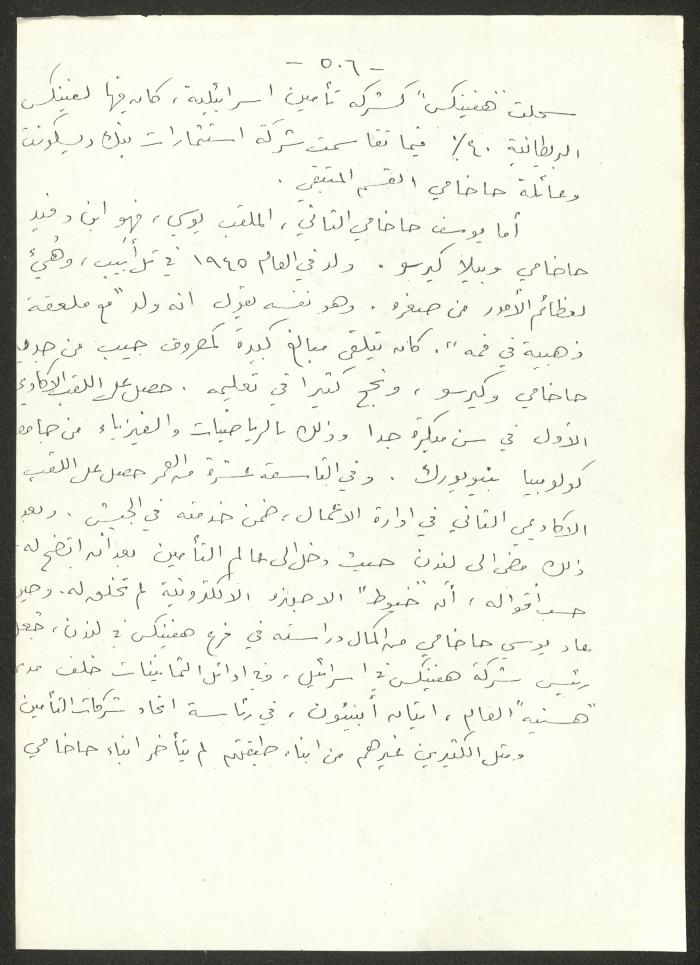 - ٥٠٦ -
سجلت "هفينكس" كشركة تأمين اسرائيلية، كان فيها لفينكس
البريطانية ٤٠٪ فيما تقاسمت شركة استثمارات بنك ديسكونت
وعائلة حاخامي القسم المتبقي.
أما يوسف حاخامي الثاني، الملقب يوسي، فهو ابن دفيد
حاخامي وبيلا كيرسو. ولد في العام ١٩٤٥ في تل أبيب، وهُيئ
لعظائم الأمور من صغره. وهو نفسه يقول انه ولد "مع ملعقة
ذهبية في فمه". كان يتلقى مبالغ كبيرة كمصروف جيب من جديه
حاخامي وكيرسو، ونجح كثيرا في تعليمه. حصل على اللقب الاكاديمي
الأول في سن مبكرة جدا وذلك بالرياضيات والفيزياء من جامعة
كولومبيا بنيويورك. وفي التاسعة عشرة من العمر حصل على اللقب
الاكاديمي الثاني في ادارة الاعمال، ضمن خدمته في الجيش. وبعد
ذلك مضى الى لندن حيث دخل الى عالم التأمين بعد أنه اتضح له،
حسب أقواله، أن "خيوط" الاجهزة الالكترونية لم تخلق له. وحين
عاد يوسي حاخامي من اكمال دراسته في فرع هفينكس في لندن، جُعل
رئيس شركة هفينكس في اسرائيل، وفي اوائل الثمانينات خلف مدير
"هسنيه" العام، ايتان أبنيئون، في رئاسة اتحاد شركات التأمين
ومثل الكثيرين غيرهم من ابناء طبقتهم لم يتأخر ابناء حاخامي